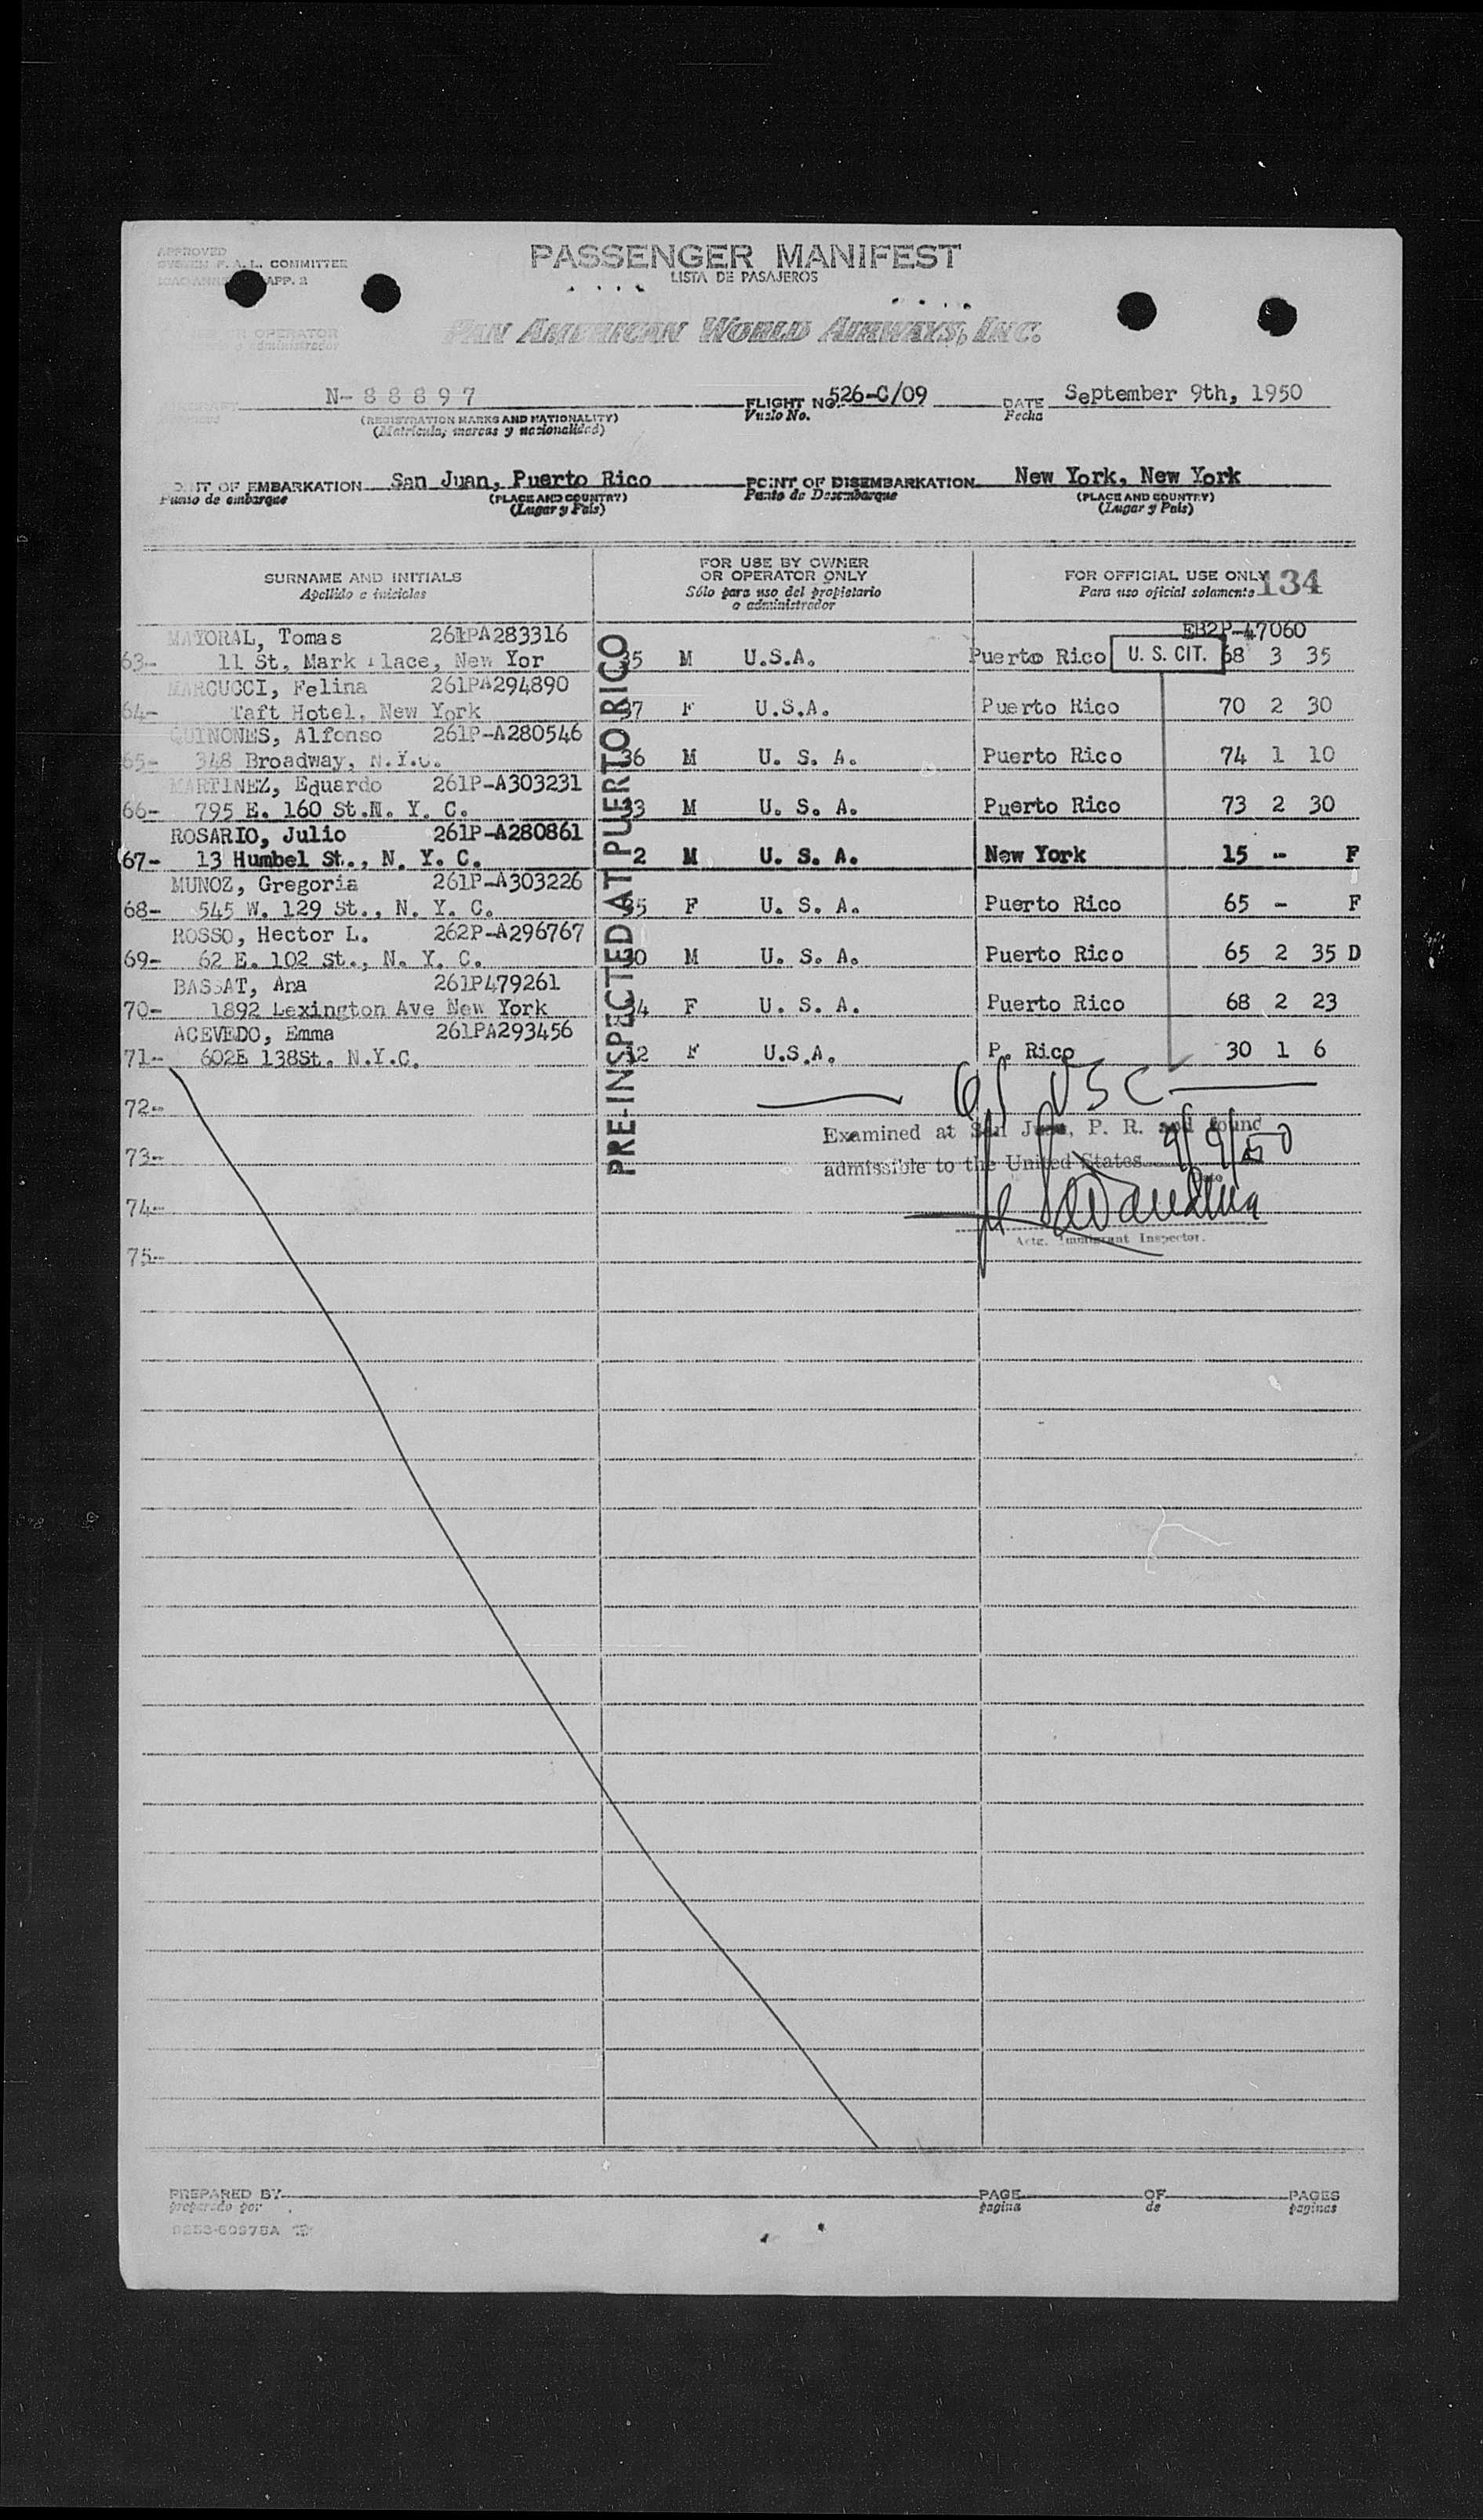 APPROVED
SYSTEM F. A. L. COMMITTEE
APP. 2
PASSENGER MANIFEST
LISTA DE PASAJEROS
OR OPERATOR
administrador
PAN AMERICAN WORLD AIRWAYS, INC.
N-88897 FLIGHT NO. 526-C/09 DATE September 9th, 1950
Vuelo No. Fecha
(REGISTRATION MARKS AND NATIONALITY)
(Matricula, marcas y nacionalidad)
OF EMBARKATION San Juan, Puerto Rico POINT OF DISEMBARKATION New York, New York
Punto de embarque (PLACE AND COUNTRY) Punto de Desembarque (PLACE AND COUNTRY)
(Lugar y País) (Lugar y País)
SURNAME AND INITIALS FOR USE BY OWNER OR OPERATOR ONLY FOR OFFICIAL USE ONLY 134
Apellido e iniciales Sólo para uso del propietario o administrador Para uso oficial solamente
MAYORAL, Tomas 261PA283316 EB2P-47060
63- 11 St, Mark lace, New Yor 35 M U.S.A. Puerto Rico U. S. CIT. 68 3 35
MARCUCCI, Felina 261PA294890
64- Taft Hotel, New York 37 F U.S.A. Puerto Rico 70 2 30
QUINONES, Alfonso 261P-A280546
65- 348 Broadway, N.Y.C. 36 M U. S. A. Puerto Rico 74 1 10
MARTINEZ, Eduardo 261P-A303231
66- 795 E. 160 St.N. Y. C. 33 M U. S. A. Puerto Rico 73 2 30
ROSARIO, Julio 261P-A280861
67- 13 Humbel St., N. Y. C. 2 M U. S. A. New York 15 - F
MUNOZ, Gregoria 261P-A303226
68- 545 W. 129 St., N. Y. C. F U. S. A. Puerto Rico 65 - F
ROSSO, Hector L. 262P-A296767
69- 62 E. 102 St., N. Y. C. M U. S. A. Puerto Rico 65 2 35 D
BASSAT, Ana 261P479261
70- 1892 Lexington Ave New York F U. S. A. Puerto Rico 68 2 23
ACEVEDO, Emma 261PA293456
71- 602E 138St. N.Y.C. F U.S.A. P. Rico 30 1 6
PRE-INSPECTED AT PUERTO RICO
USC
72-
Examined at San Juan, P. R. and found
73-
admissible to the United States 9/9/50
Date
74-
Actg. Immigrant Inspector.
75-
PREPARED BY PAGE OF PAGES
preparado por pagina de paginas